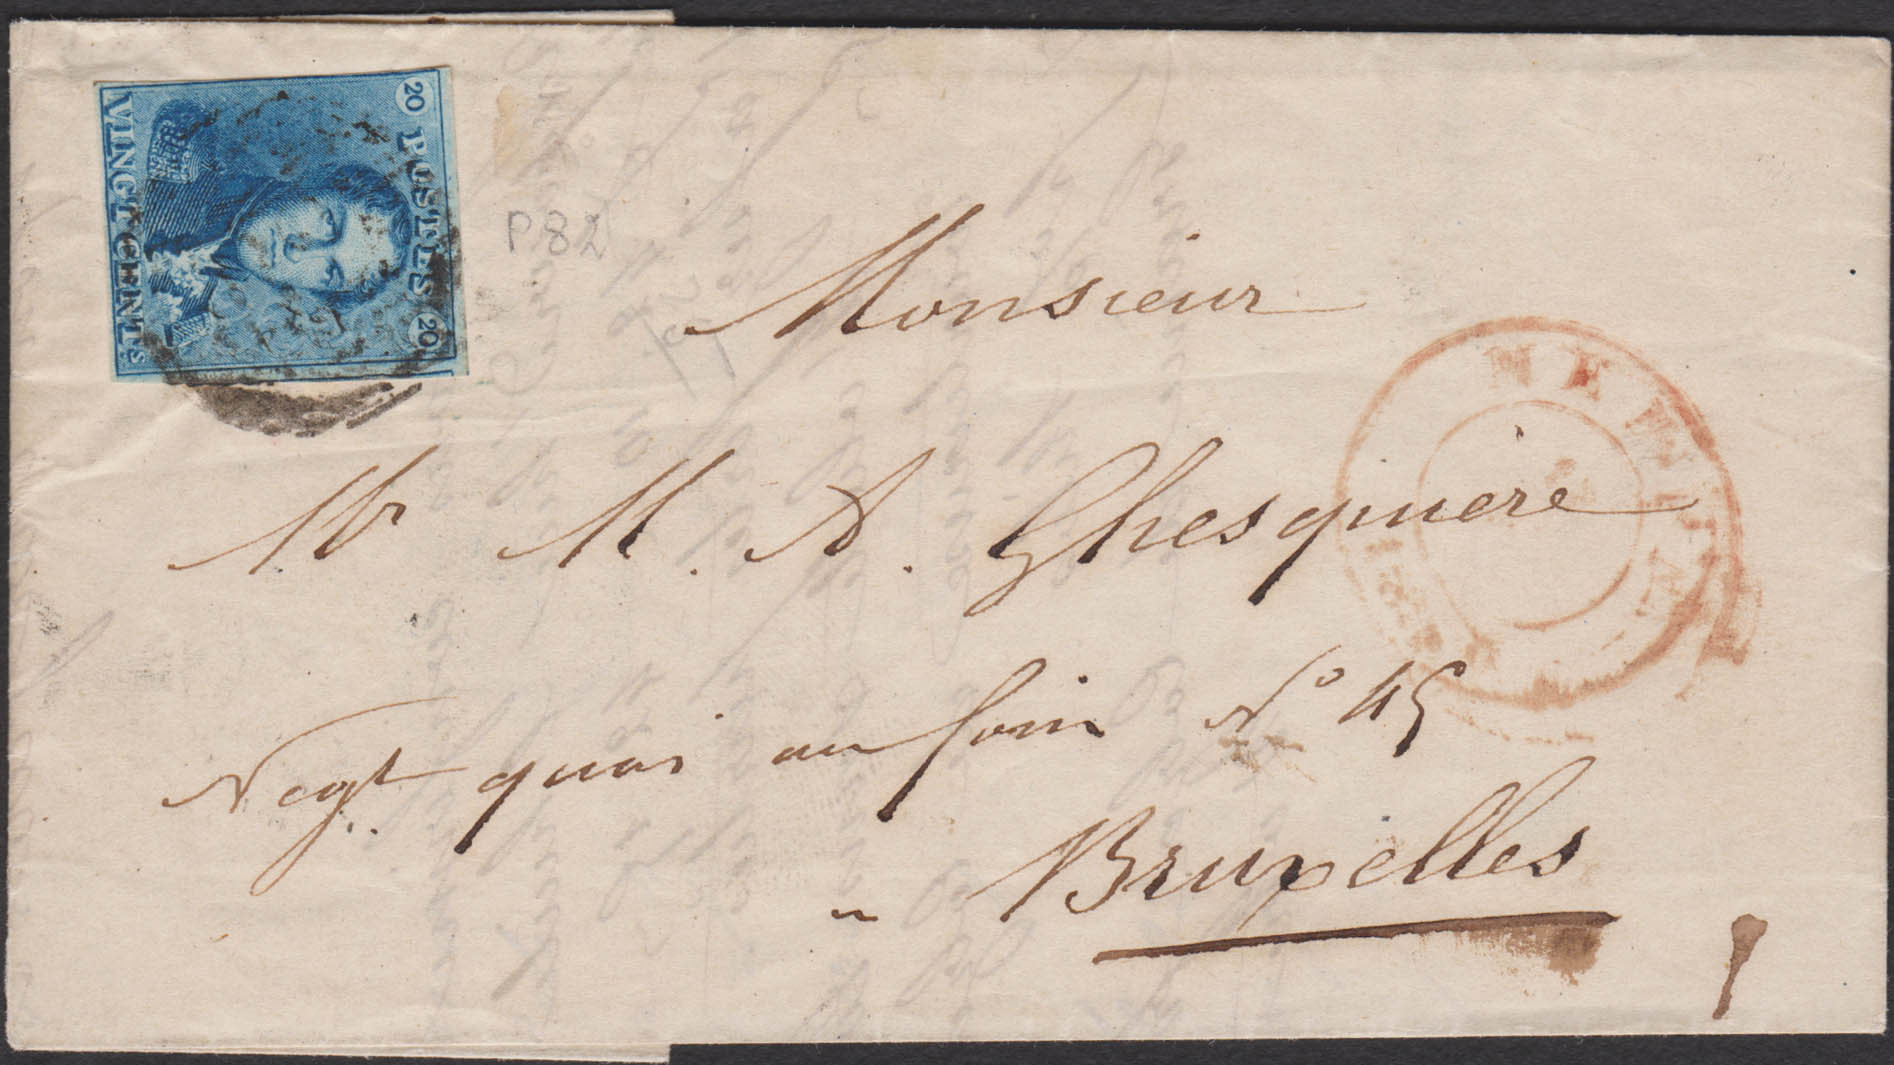 20 POSTES 20
VINGT CENTS
P82
Monsieur
Mr M. A. Ghesquiere
Negt quai au foin No 45
a Bruxelles